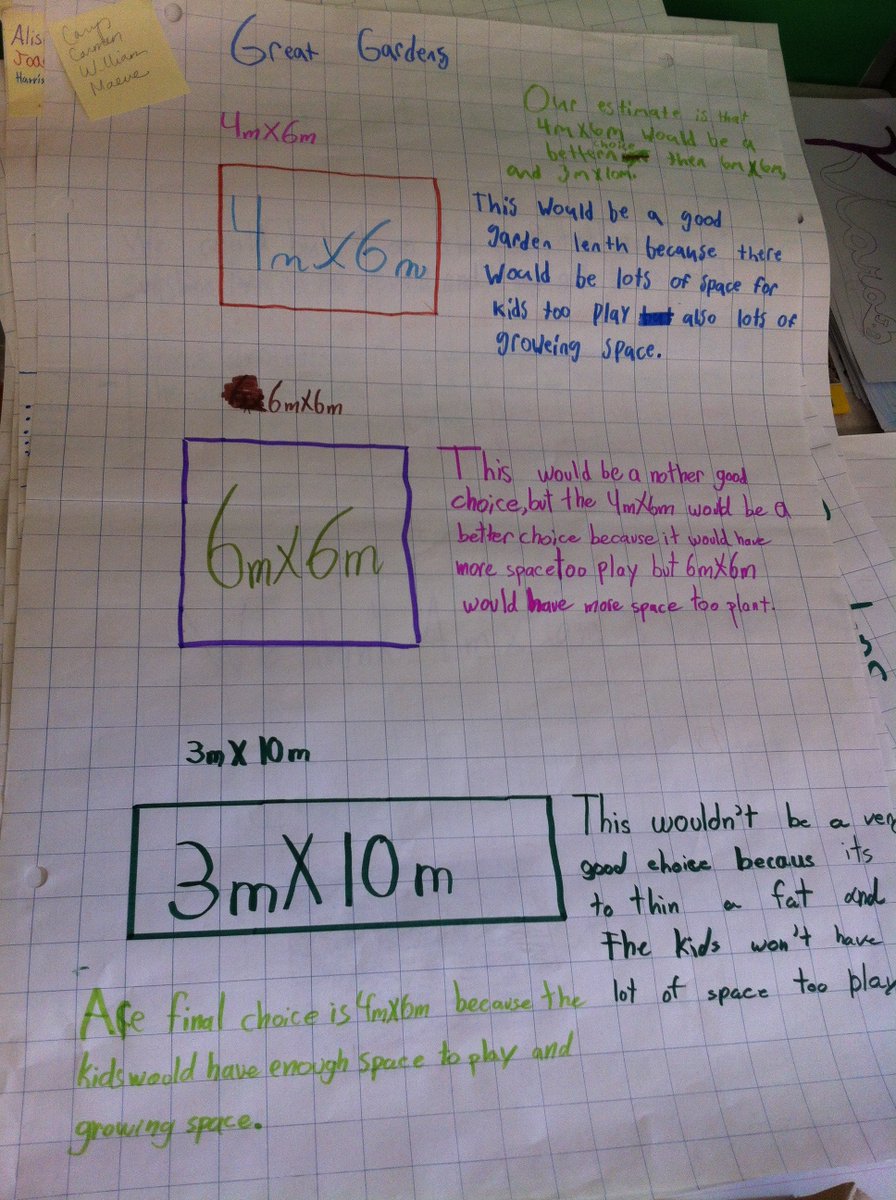 Alis
Joa
Harris
Carys
Carmen
William
Maeve
Great Gardens
4mX6m
Our estimate is that
4mX6m would be a
better choice then 6mX6m,
and 3mX10m.
4mX6m
This would be a good
garden lenth because there
would be lots of space for
kids too play also lots of
groweing space.
6mX6m
6mX6m
This would be a nother good
choice, but the 4mX6m would be a
better choice because it would have
more space too play but 6mX6m
would have more space too plant.
3mX10m
3mX10m
This wouldn't be a very
good choice becaus its
to thin a fat and
The kids won't have
lot of space too play
Are final choice is 4mX6m because the
kids woold have enough space to play and
growing space.